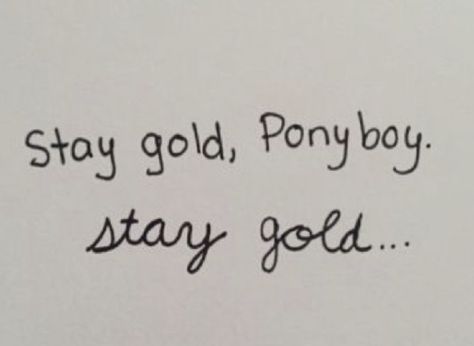 Stay gold, Ponyboy.
stay gold...